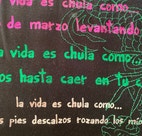 vida es chula como...
de marzo levantando
la vida es chula como...
os hasta caer en tu c
la vida es chula como...
s pies descalzos rozando los